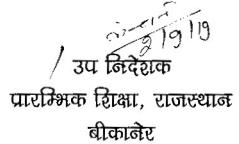 2/9/19
उप निदेशक
प्रारम्भिक शिक्षा, राजस्थान
बीकानेर